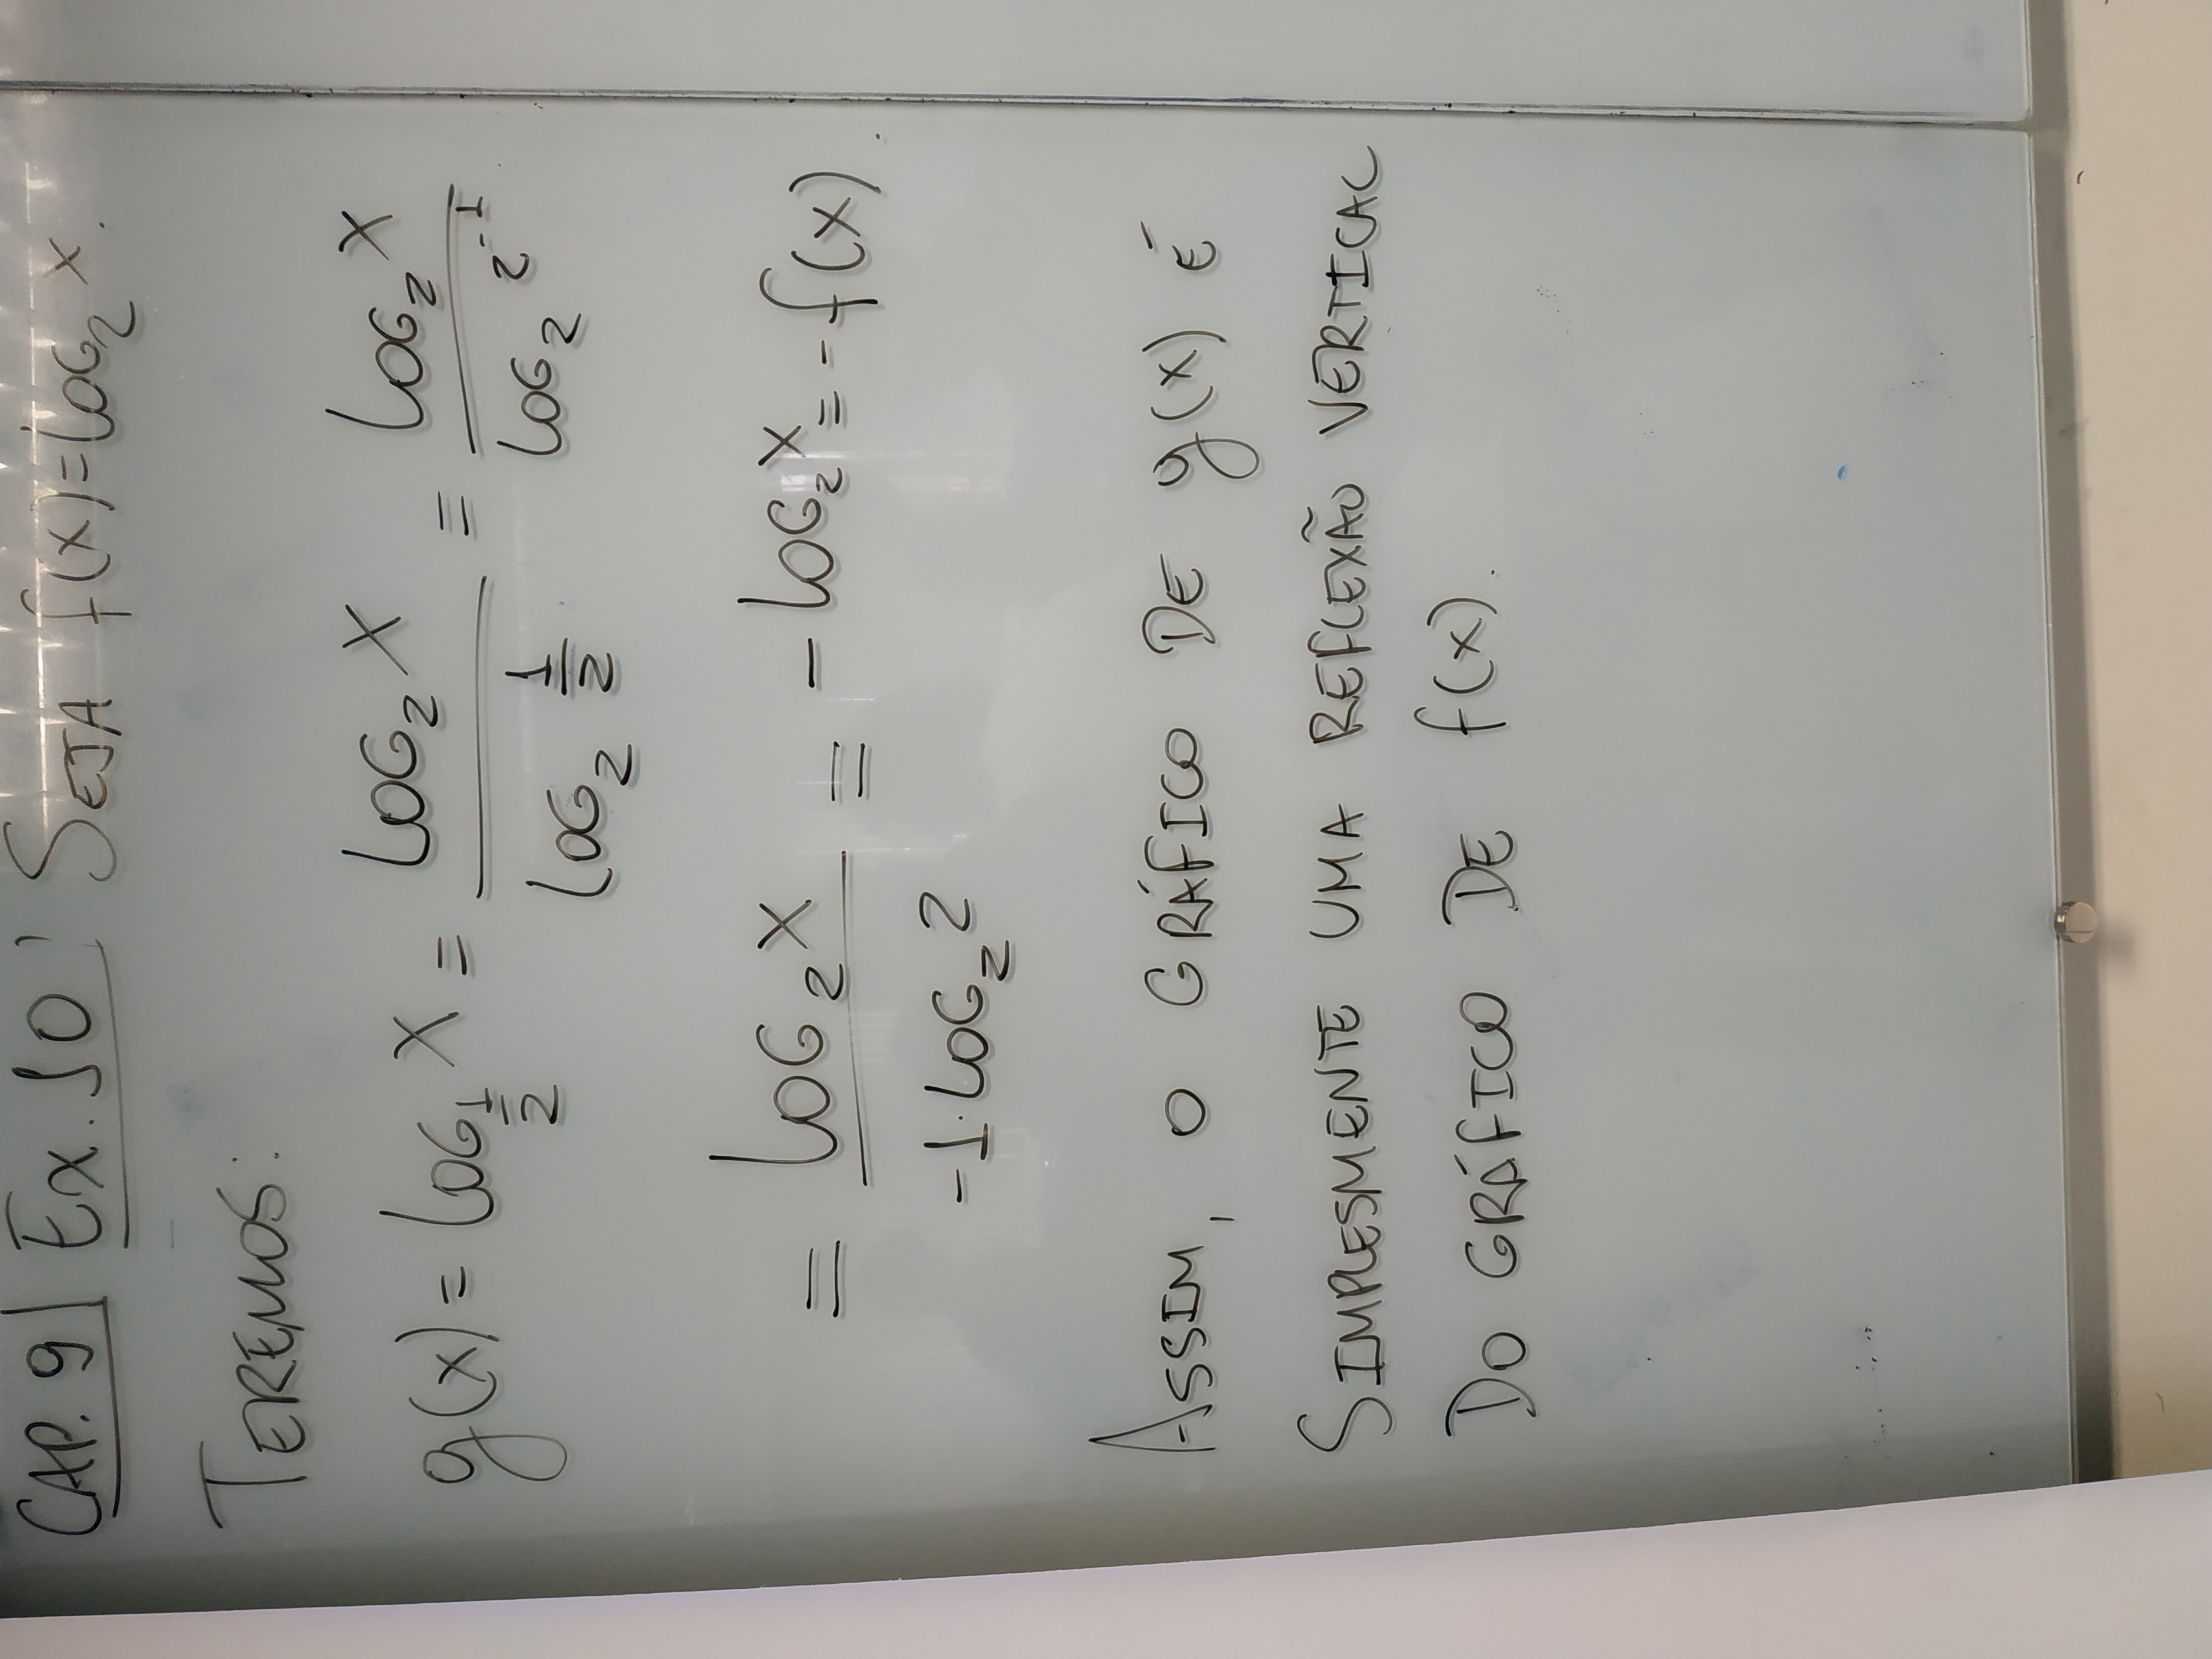 CAP. 9 | EX. 10 : SEJA f(x) = LOG₂ x.
TEREMOS:
g(x) = LOG_{1/2} x = (LOG₂ x)/(LOG₂ 1/2) = (LOG₂ x)/(LOG₂ 2⁻¹)
= (LOG₂ x)/(-1·LOG₂ 2) = -LOG₂ x = -f(x).
ASSIM, O GRÁFICO DE g(x) É
SIMPLESMENTE UMA REFLEXÃO VERTICAL
DO GRÁFICO DE f(x).